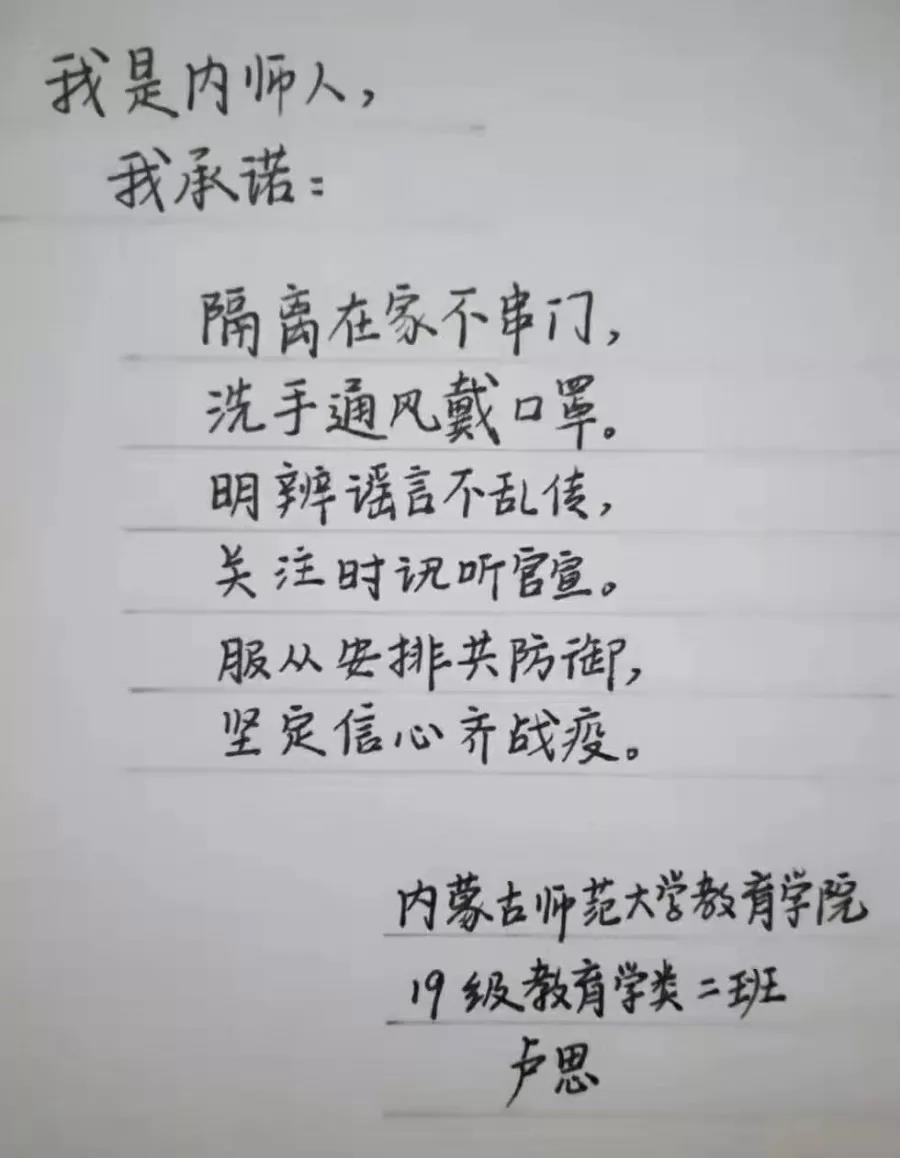 我是内师人，
我承诺：
隔离在家不串门，
洗手通风戴口罩。
明辨谣言不乱传，
关注时讯听官宣。
服从安排共防御，
坚定信心齐战疫。
内蒙古师范大学教育学院
19级教育学类二班
卢思